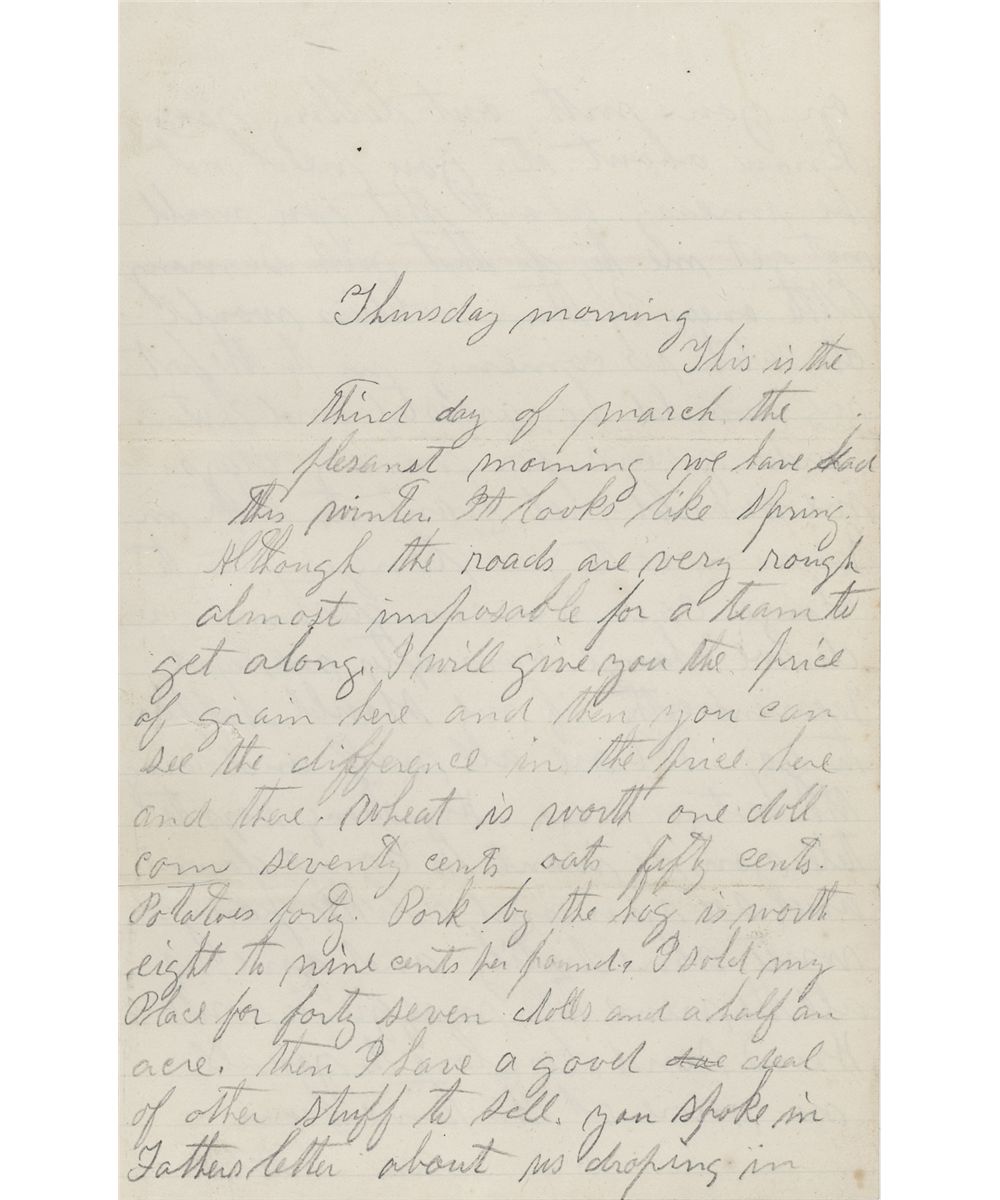 Thursday morning
This is the
third day of march the
plesanst morning we have had
this winter. It looks like spring.
Although the roads are very rough
almost imposable for a team to
get along. I will give you the price
of grain here and then you can
see the difference in the price here
and there. Wheat is worth one doll
corn seventy cents oats fifty cents.
Potatoes forty. Pork by the hog is worth
eight to nine cents per pound. I sold my
Place for forty seven dolls and a half an
acre. then I have a good deal
of other stuff to sell. you spoke in
Fathers letter about us droping in